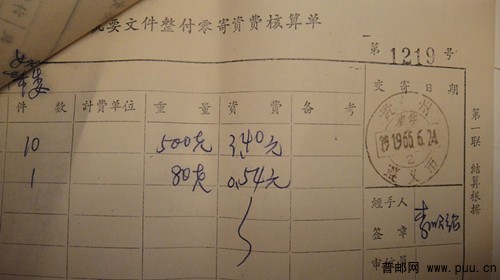 要文件整付零寄資費核算单
第 1219 号
件 数 計費单位 重 量 資 費 备 考
10 500克 3.40元
1 80克 0.54元
交 寄 日 期
貴州
1965.6.24
2
遵义市
經手人
簽 章
审核員
第一联 結算根据
普邮网 www.puu.cn